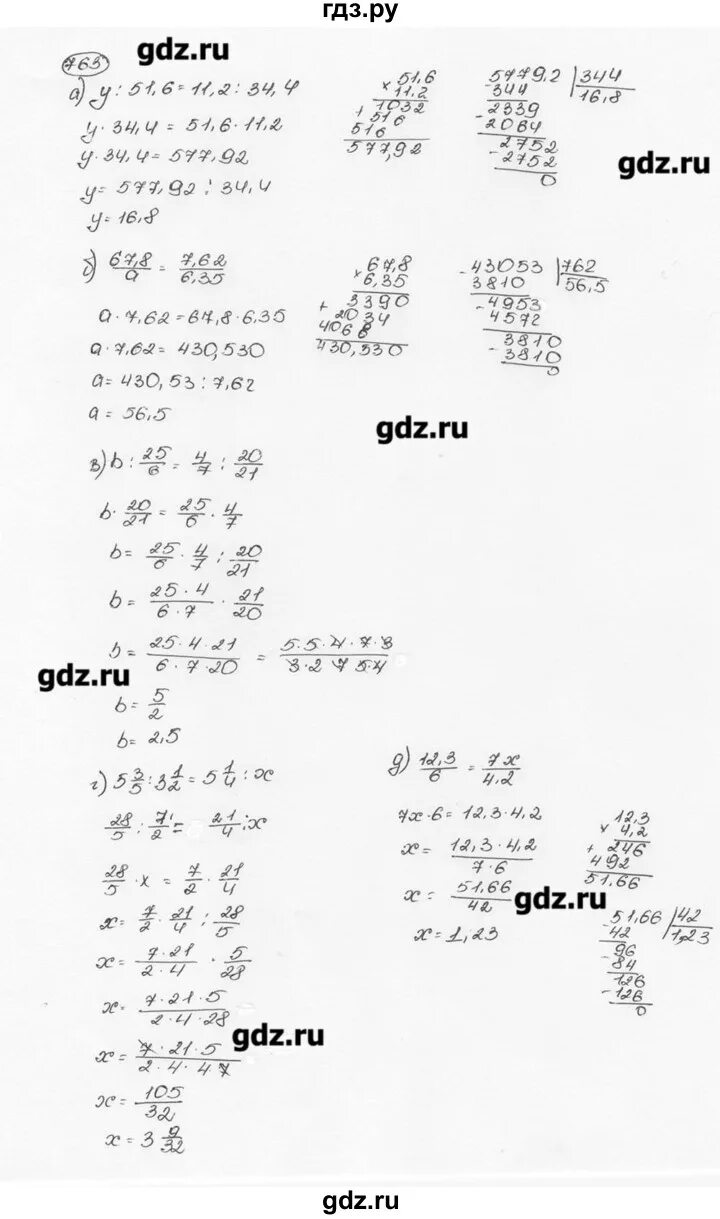 гдз.ру
gdz.ru
763
а) y : 51,6 = 11,2 : 34,4
y · 34,4 = 51,6 · 11,2
y · 34,4 = 577,92
y = 577,92 : 34,4
y = 16,8
51,6
× 11,2
1032
+ 516
516
577,92
5779,2 | 344
- 344
16,8
2339
- 2064
2752
- 2752
0
gdz.ru
б) 67,8/a = 7,62/6,35
a · 7,62 = 67,8 · 6,35
a · 7,62 = 430,530
a = 430,53 : 7,62
a = 56,5
67,8
× 6,35
3390
+ 2034
4068
430,530
- 43053 | 762
3810
56,5
- 4953
4572
3810
- 3810
0
gdz.ru
в) b : 25/6 = 4/7 : 20/21
b · 20/21 = 25/6 · 4/7
b = 25/6 · 4/7 : 20/21
b = 25 · 4/6 · 7 · 21/20
b = 25 · 4 · 21/6 · 7 · 20 = 5 · 5 · 4 · 7 · 3/3 · 2 7 5 · 4
gdz.ru
b = 5/2
b = 2,5
г) 5 3/5 : 3 1/2 = 5 1/4 : x
28/5 : 7/2 = 21/4 : x
28/5 · x = 7/2 · 21/4
x = 7/2 · 21/4 : 28/5
x = 7 · 21/2 · 4 · 5/28
x = 7 · 21 · 5/2 · 4 · 28
x = 7 · 21 · 5/2 · 4 · 4 7
x = 105/32
x = 3 9/32
д) 12,3/6 = 7x/4,2
7x · 6 = 12,3 · 4,2
x = 12,3 · 4,2/7 · 6
x = 51,66/42
x = 1,23
12,3
× 4,2
+ 246
492
51,66
gdz.ru
- 51,66 | 42
42
1,23
- 96
84
126
- 126
0
gdz.ru
gdz.ru